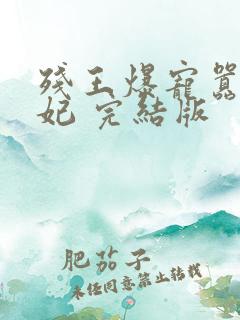 残王爆寵囂
妃 完結版
肥茄子
未经同意禁止转载